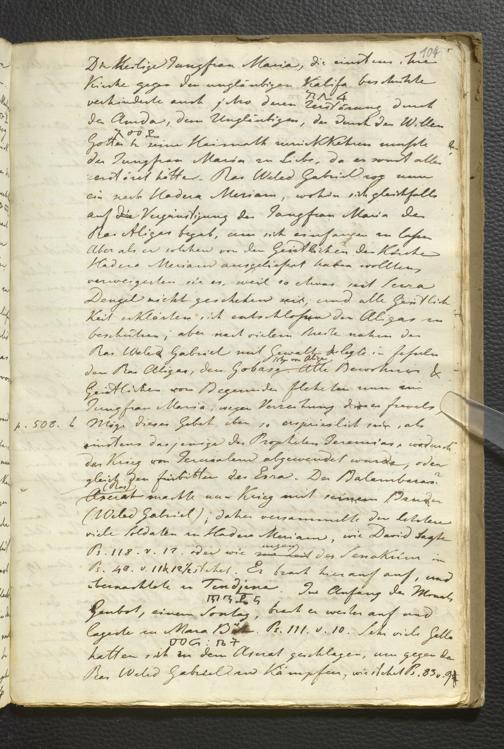 104
Die Heilige Jungfrau Maria, die einstens ihre
Kirche gegen den ungläubigen Kalifa beschützte
verhinderte auch jetzo deren Zerstörung durch
den Amda, dem Ungläubigen, der durch den Willen
Gottes in seine Heimath zurückkehren mußte
der Jungfrau Maria zu Liebe, da er sonst alles
zerstört hätte. Ras Weled Gabriel zog nun
ein nach Hadera Meriam, wohin sich gleichfalls
auf die Vergünstigung der Jungfrau Maria der
Ras Aligas begab, um sich einfangen zu lassen
Aber als er solchen von den Geistlichen der Kirche
Hadera Meriam ausgeliefert haben wollte,
verweigerten sie es, weil so etwas seit Serza
Dengel nicht geschehen sei, und alle Geistlich
keit erklärte sich entschlossen den Aligas zu
beschützen; aber nach vielem Streite nahm der
Ras Weled Gabriel mit Gewalt & legte in Fesseln
den Ras Aligas, den Gobasie. Alle Bewohner &
Geistlichen von Begemeder flehten nun zur
Jungfrau Maria, wegen Verzeihung dieses Frevels,
p. 508. b Möge dieses Gebet eben so ersprieslich sein, als
einstens dasjenige des Propheten Jeremias, wodurch
der Krieg von Jerusalem abgewendet wurde, oder
gleich der Fürbitten des Esra. Der Balambaras
(Ras)
Aserat machte nun Krieg mit seinem Bruder
(Weled Gabriel); daher versammelte der letztere
viele Soldaten in Hadera Meriam, wie David sagte
Ps. 118. v. 12. oder wie des Senakerim in
Ps. Er brach hierauf auf, und
übernachtete in Tendjena Im Anfang des Monats
Genbot, einem Sonntag, brach er weiter auf und
lagerte in Mara Ps. 111. v. 10. Sehr viele Galla
hatten sich zu dem Aserat geschlagen, um gegen den
Ras Weled Gabriel zu kämpfen, wie stehet Ps. 83. v.